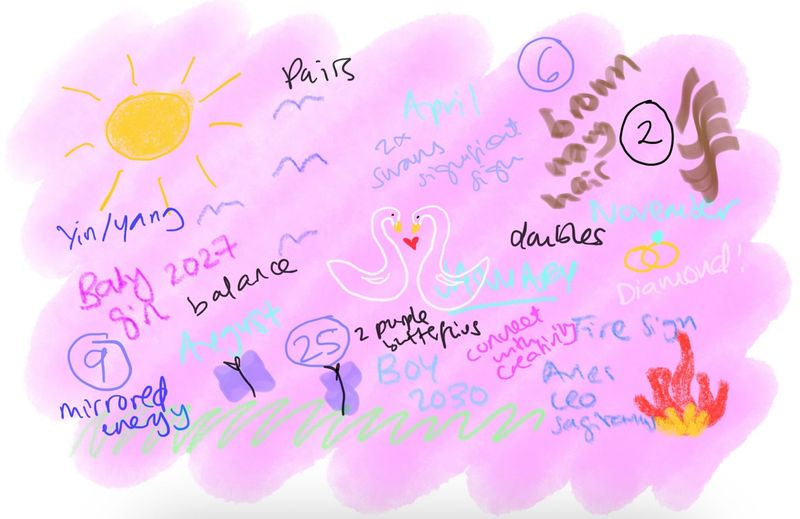 pairs
6
April
brown
wavy
hair
2
2x
swans
significant
sign
Yin/yang
November
doubles
Baby 2027
girl
balance
JANUARY
Diamond!
August
25
2 purple
butterflies
connect
with
creativity
Fire sign
9
BOY
2030
Aries
Leo
Sagittarius
mirrored
energy